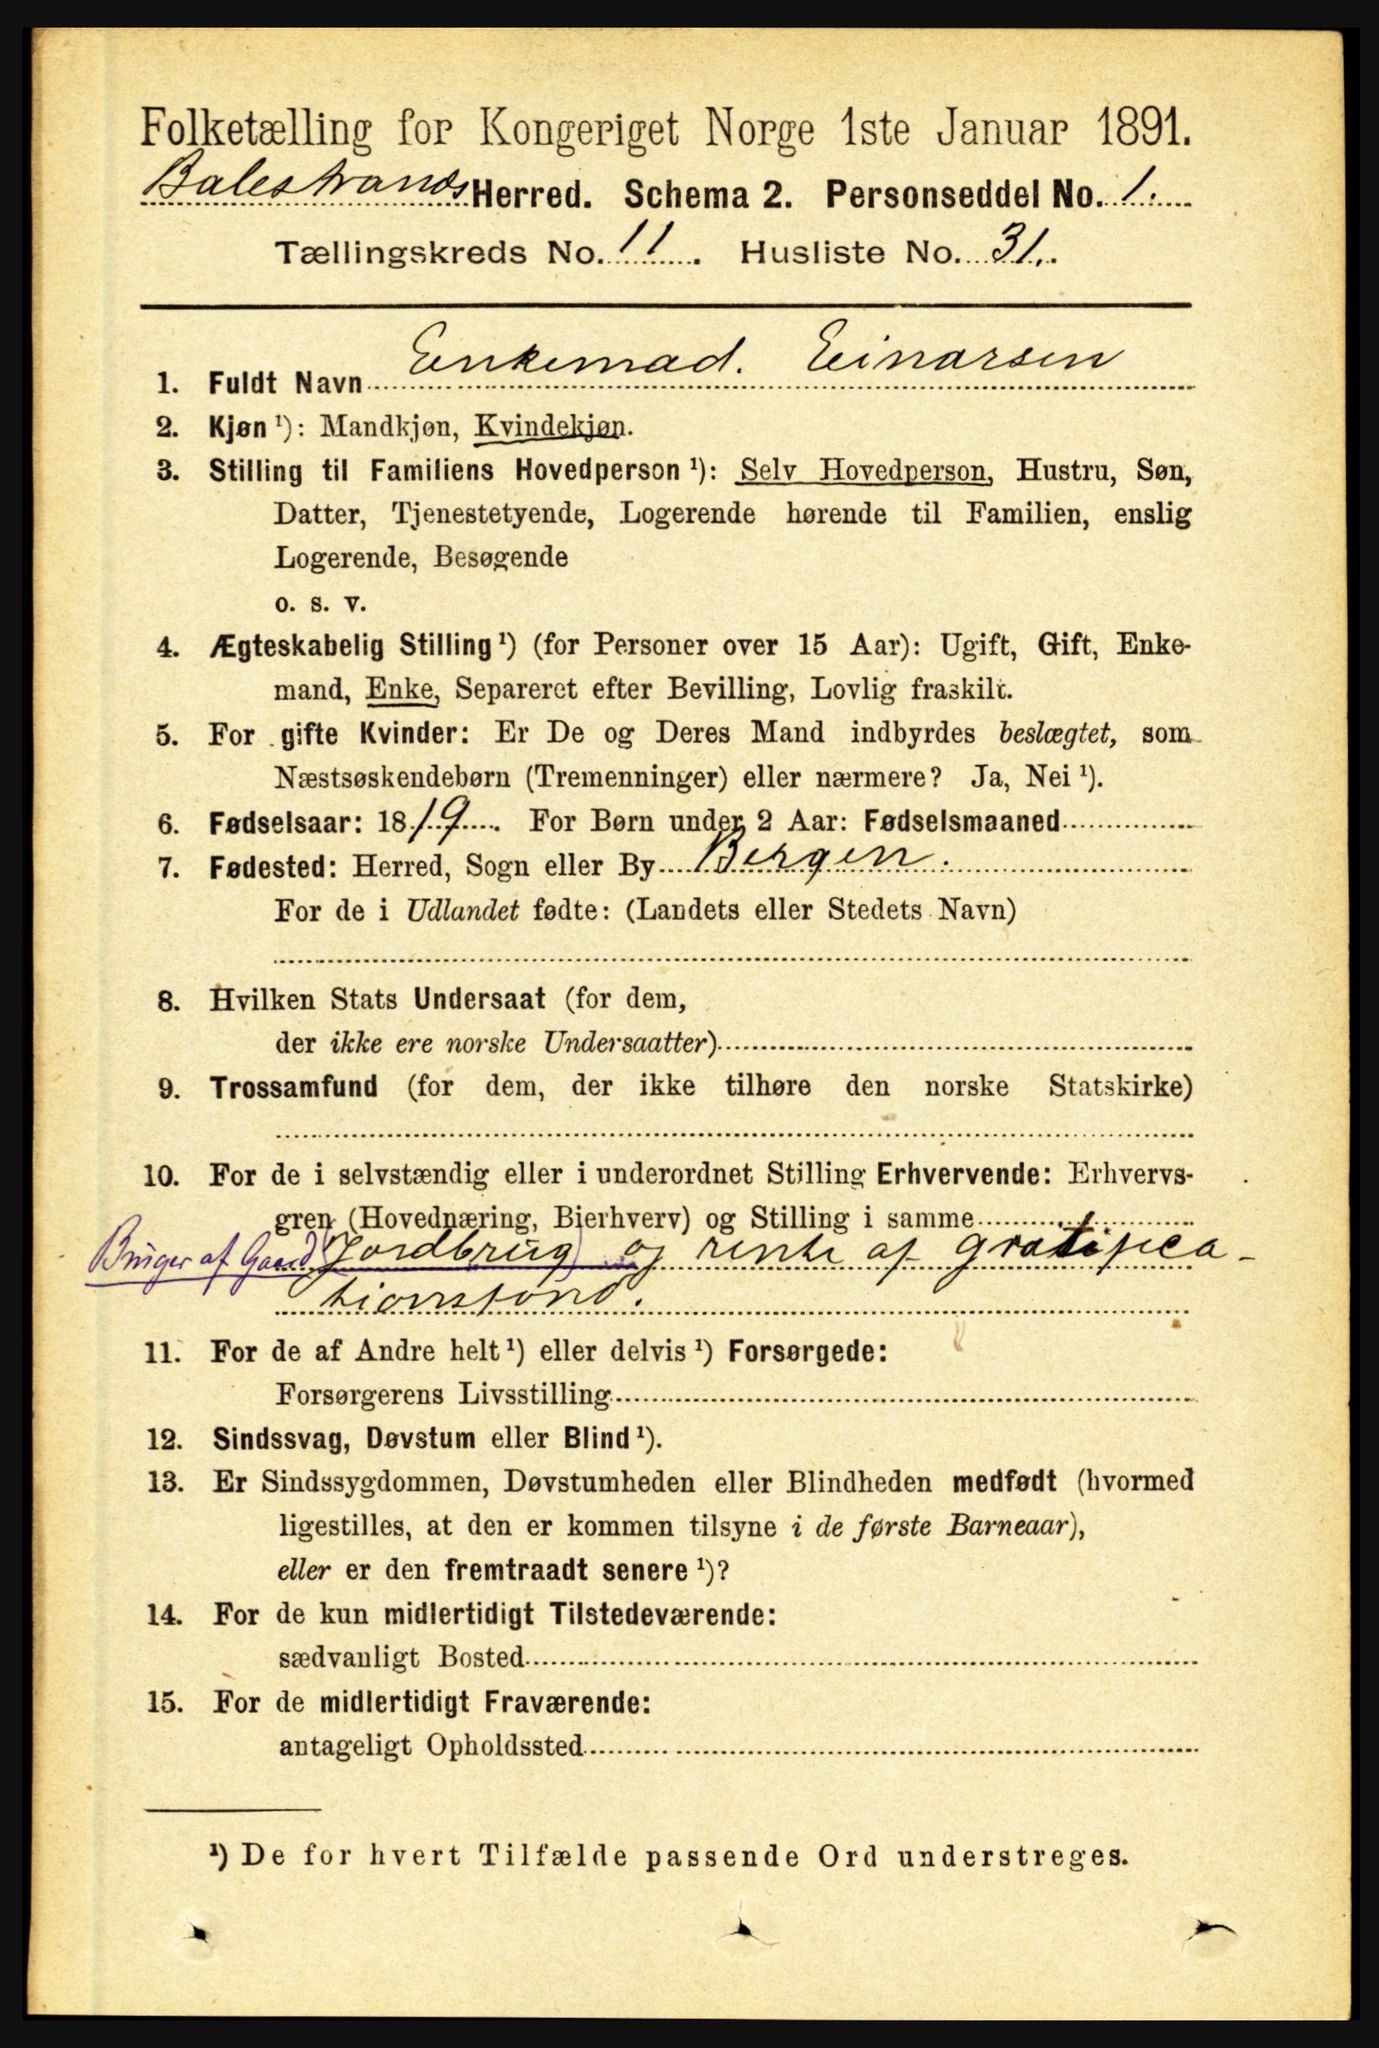 Folketælling for Kongeriget Norge 1ste Januar 1891.
Balestrands Herred. Schema 2. Personseddel No. 1.
Tællingskreds No. 11. Husliste No. 31.
1. Fuldt Navn Enkemad. Einarsen
2. Kjøn ¹): Mandkjøn, Kvindekjøn.
3. Stilling til Familiens Hovedperson ¹): Selv Hovedperson, Hustru, Søn,
Datter, Tjenestetyende, Logerende hørende til Familien, enslig
Logerende, Besøgende
o. s. v.
4. Ægteskabelig Stilling ¹) (for Personer over 15 Aar): Ugift, Gift, Enke-
mand, Enke, Separeret efter Bevilling, Lovlig fraskilt.
5. For gifte Kvinder: Er De og Deres Mand indbyrdes beslægtet, som
Næstsøskendebørn (Tremenninger) eller nærmere? Ja, Nei ¹).
6. Fødselsaar: 1819. For Børn under 2 Aar: Fødselsmaaned
7. Fødested: Herred, Sogn eller By Bergen.
For de i Udlandet fødte: (Landets eller Stedets Navn)
8. Hvilken Stats Undersaat (for dem,
der ikke ere norske Undersaatter)
9. Trossamfund (for dem, der ikke tilhøre den norske Statskirke)
10. For de i selvstændig eller i underordnet Stilling Erhvervende: Erhvervs-
gren (Hovednæring, Bierhverv) og Stilling i samme
Bruger af Gaard (Jordbrug) og rente af gratifica-
tionsfond.
11. For de af Andre helt ¹) eller delvis ¹) Forsørgede:
Forsørgerens Livsstilling
12. Sindssvag, Døvstum eller Blind ¹).
13. Er Sindssygdommen, Døvstumheden eller Blindheden medfødt (hvormed
ligestilles, at den er kommen tilsyne i de første Barneaar),
eller er den fremtraadt senere ¹)?
14. For de kun midlertidigt Tilstedeværende:
sædvanligt Bosted
15. For de midlertidigt Fraværende:
antageligt Opholdssted
¹) De for hvert Tilfælde passende Ord understreges.